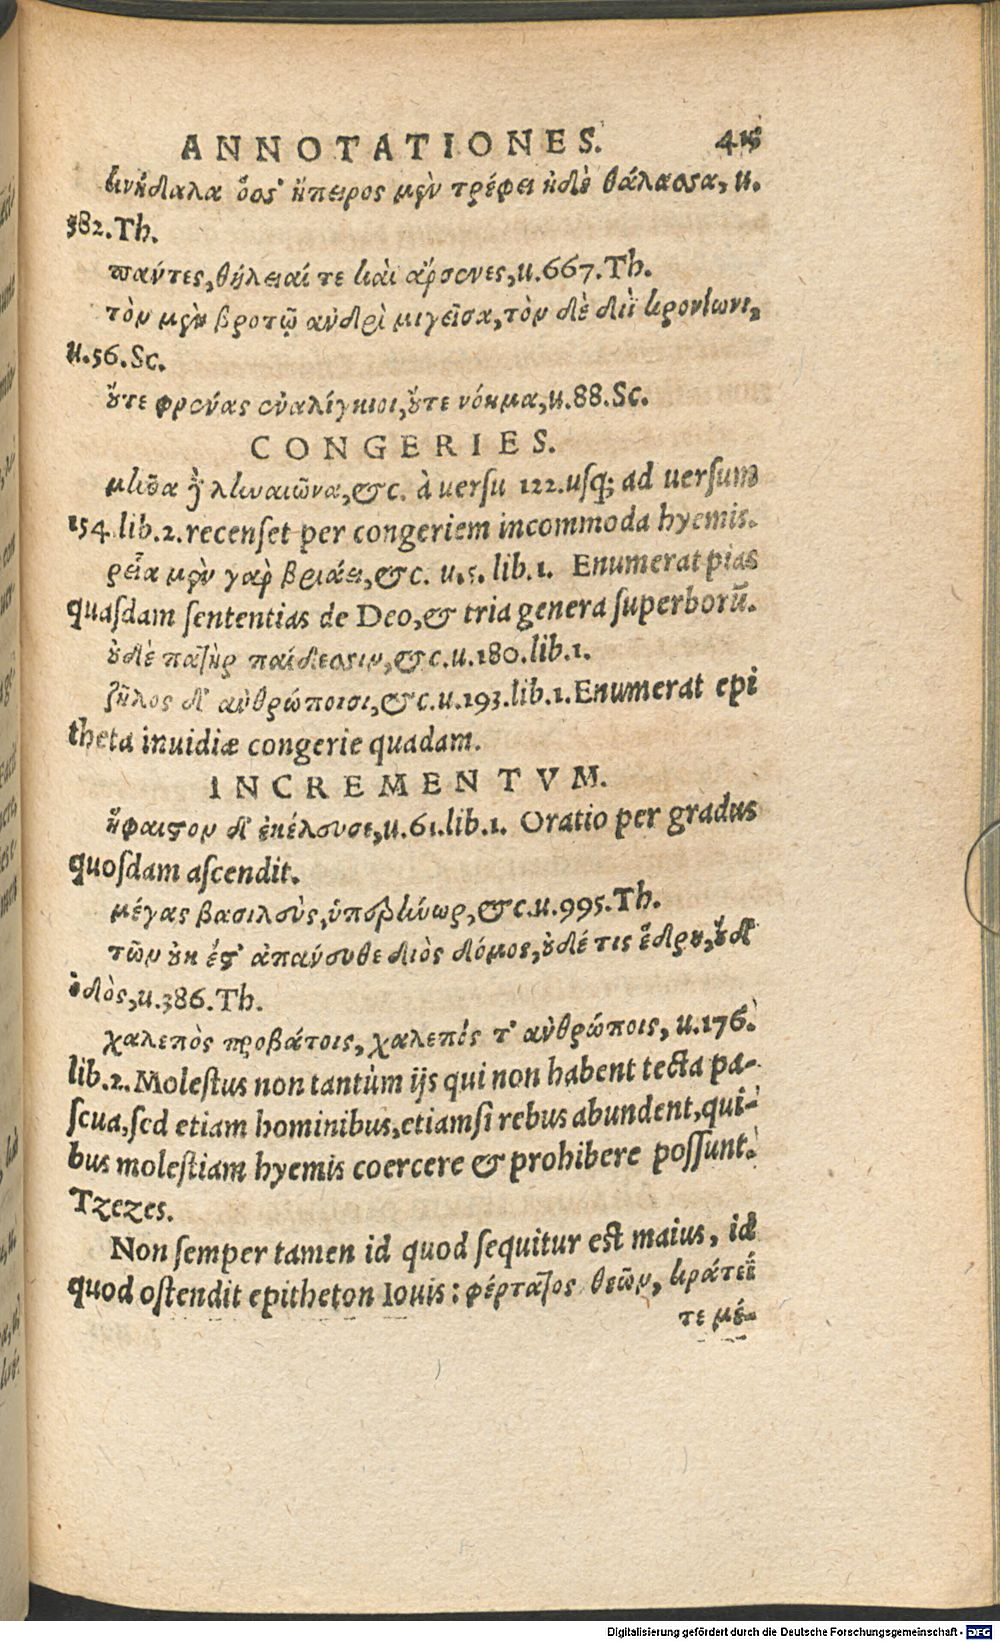 ANNOTATIONES.
κνώδαλα ὅσσ' ἤπειρος μὲν τρέφει ἠδὲ θάλασσα, u.
582. Th.
πάντες, θήλειαί τε καὶ ἄρσενες, u. 667. Th.
τὸν μὲν βροτῷ ἀνδρὶ μιγεῖσα, τὸν δὲ διὶ κρονίωνι,
u. 56. Sc.
ὔτε φρένας ἐναλίγκιοι, ὔτε νόημα, u. 88. Sc.
CONGERIES.
μῆνα δὲ ληναιῶνα, &c. à uersu 122. uſq; ad uerſum
154. lib. 2. recenſet per congeriem incommoda hyemis.
ῥεῖα μὲν γαρ βριάει, &c. u. 5. lib. 1. Enumerat pias
quaſdam ſententias de Deo, & tria genera ſuperborū.
ὐδὲ πατὴρ παίδεσσιν, &c. u. 180. lib. 1.
ζῆλος δ' ἀνθρώποισι, &c. u. 193. lib. 1. Enumerat epi
theta inuidiæ congerie quadam.
INCREMENTVM.
ἥφαιστον δ' ἐκέλευσε, u. 61. lib. 1. Oratio per gradus
quoſdam aſcendit.
μέγας βασιλεὺς, ὑπερήνωρ, &c. u. 995. Th.
τῶν ὐκ ἔστ' ἀπάνευθε διὸς δόμος, ὐδέ τις ἕδρη, ὐδ'
ὁδὸς, u. 386. Th.
χαλεπὸς προβάτοις, χαλεπός τ' ἀνθρώποις, u. 176.
lib. 2. Moleſtus non tantùm ijs qui non habent tecta pa-
ſcua, ſed etiam hominibus, etiamſi rebus abundent, qui-
bus moleſtiam hyemis coercere & prohibere poſſunt.
Tzezes.
Non ſemper tamen id quod ſequitur eſt maius, id
quod oſtendit epitheton Iouis: φέρτατος θεῶν, κράτεϊ
τε μέ-
Digitalisierung gefördert durch die Deutsche Forschungsgemeinschaft - DFG